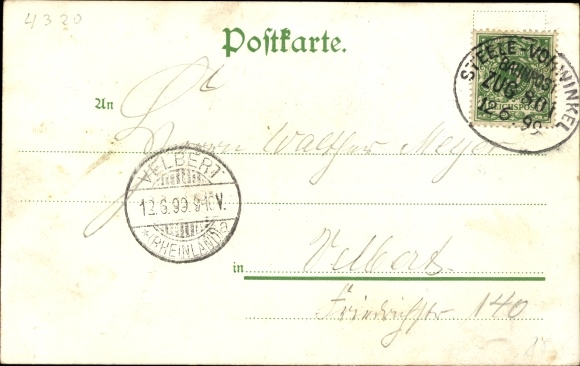 4320
Postkarte.
STEELE-VOHWINKEL
BAHNPOST
ZUG 801
12.6.99
REICHSPOST
An
Herrn Walther Meyer
VELBERT
12.6.99.9-10V.
(RHEINLAND)
in Velbert.
Friedrichstr 140